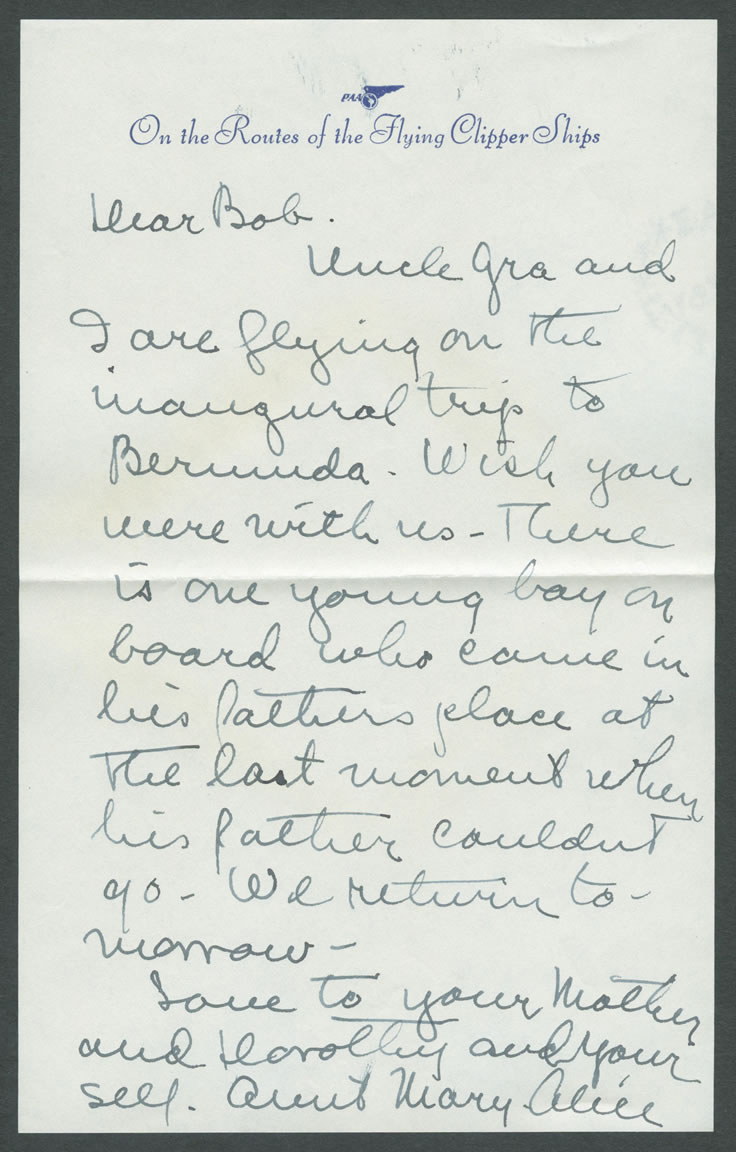 PAA
On the Routes of the Flying Clipper Ships
Dear Bob.
Uncle Gra and
I are flying on the
inaugural trip to
Bermuda - Wish you
were with us - There
is one young boy on
board who came in
his fathers place at
the last moment when
his father couldnt
go - We return to-
morrow -
Love to your Mother
and Dorothy and your
self. Aunt Mary-Alice